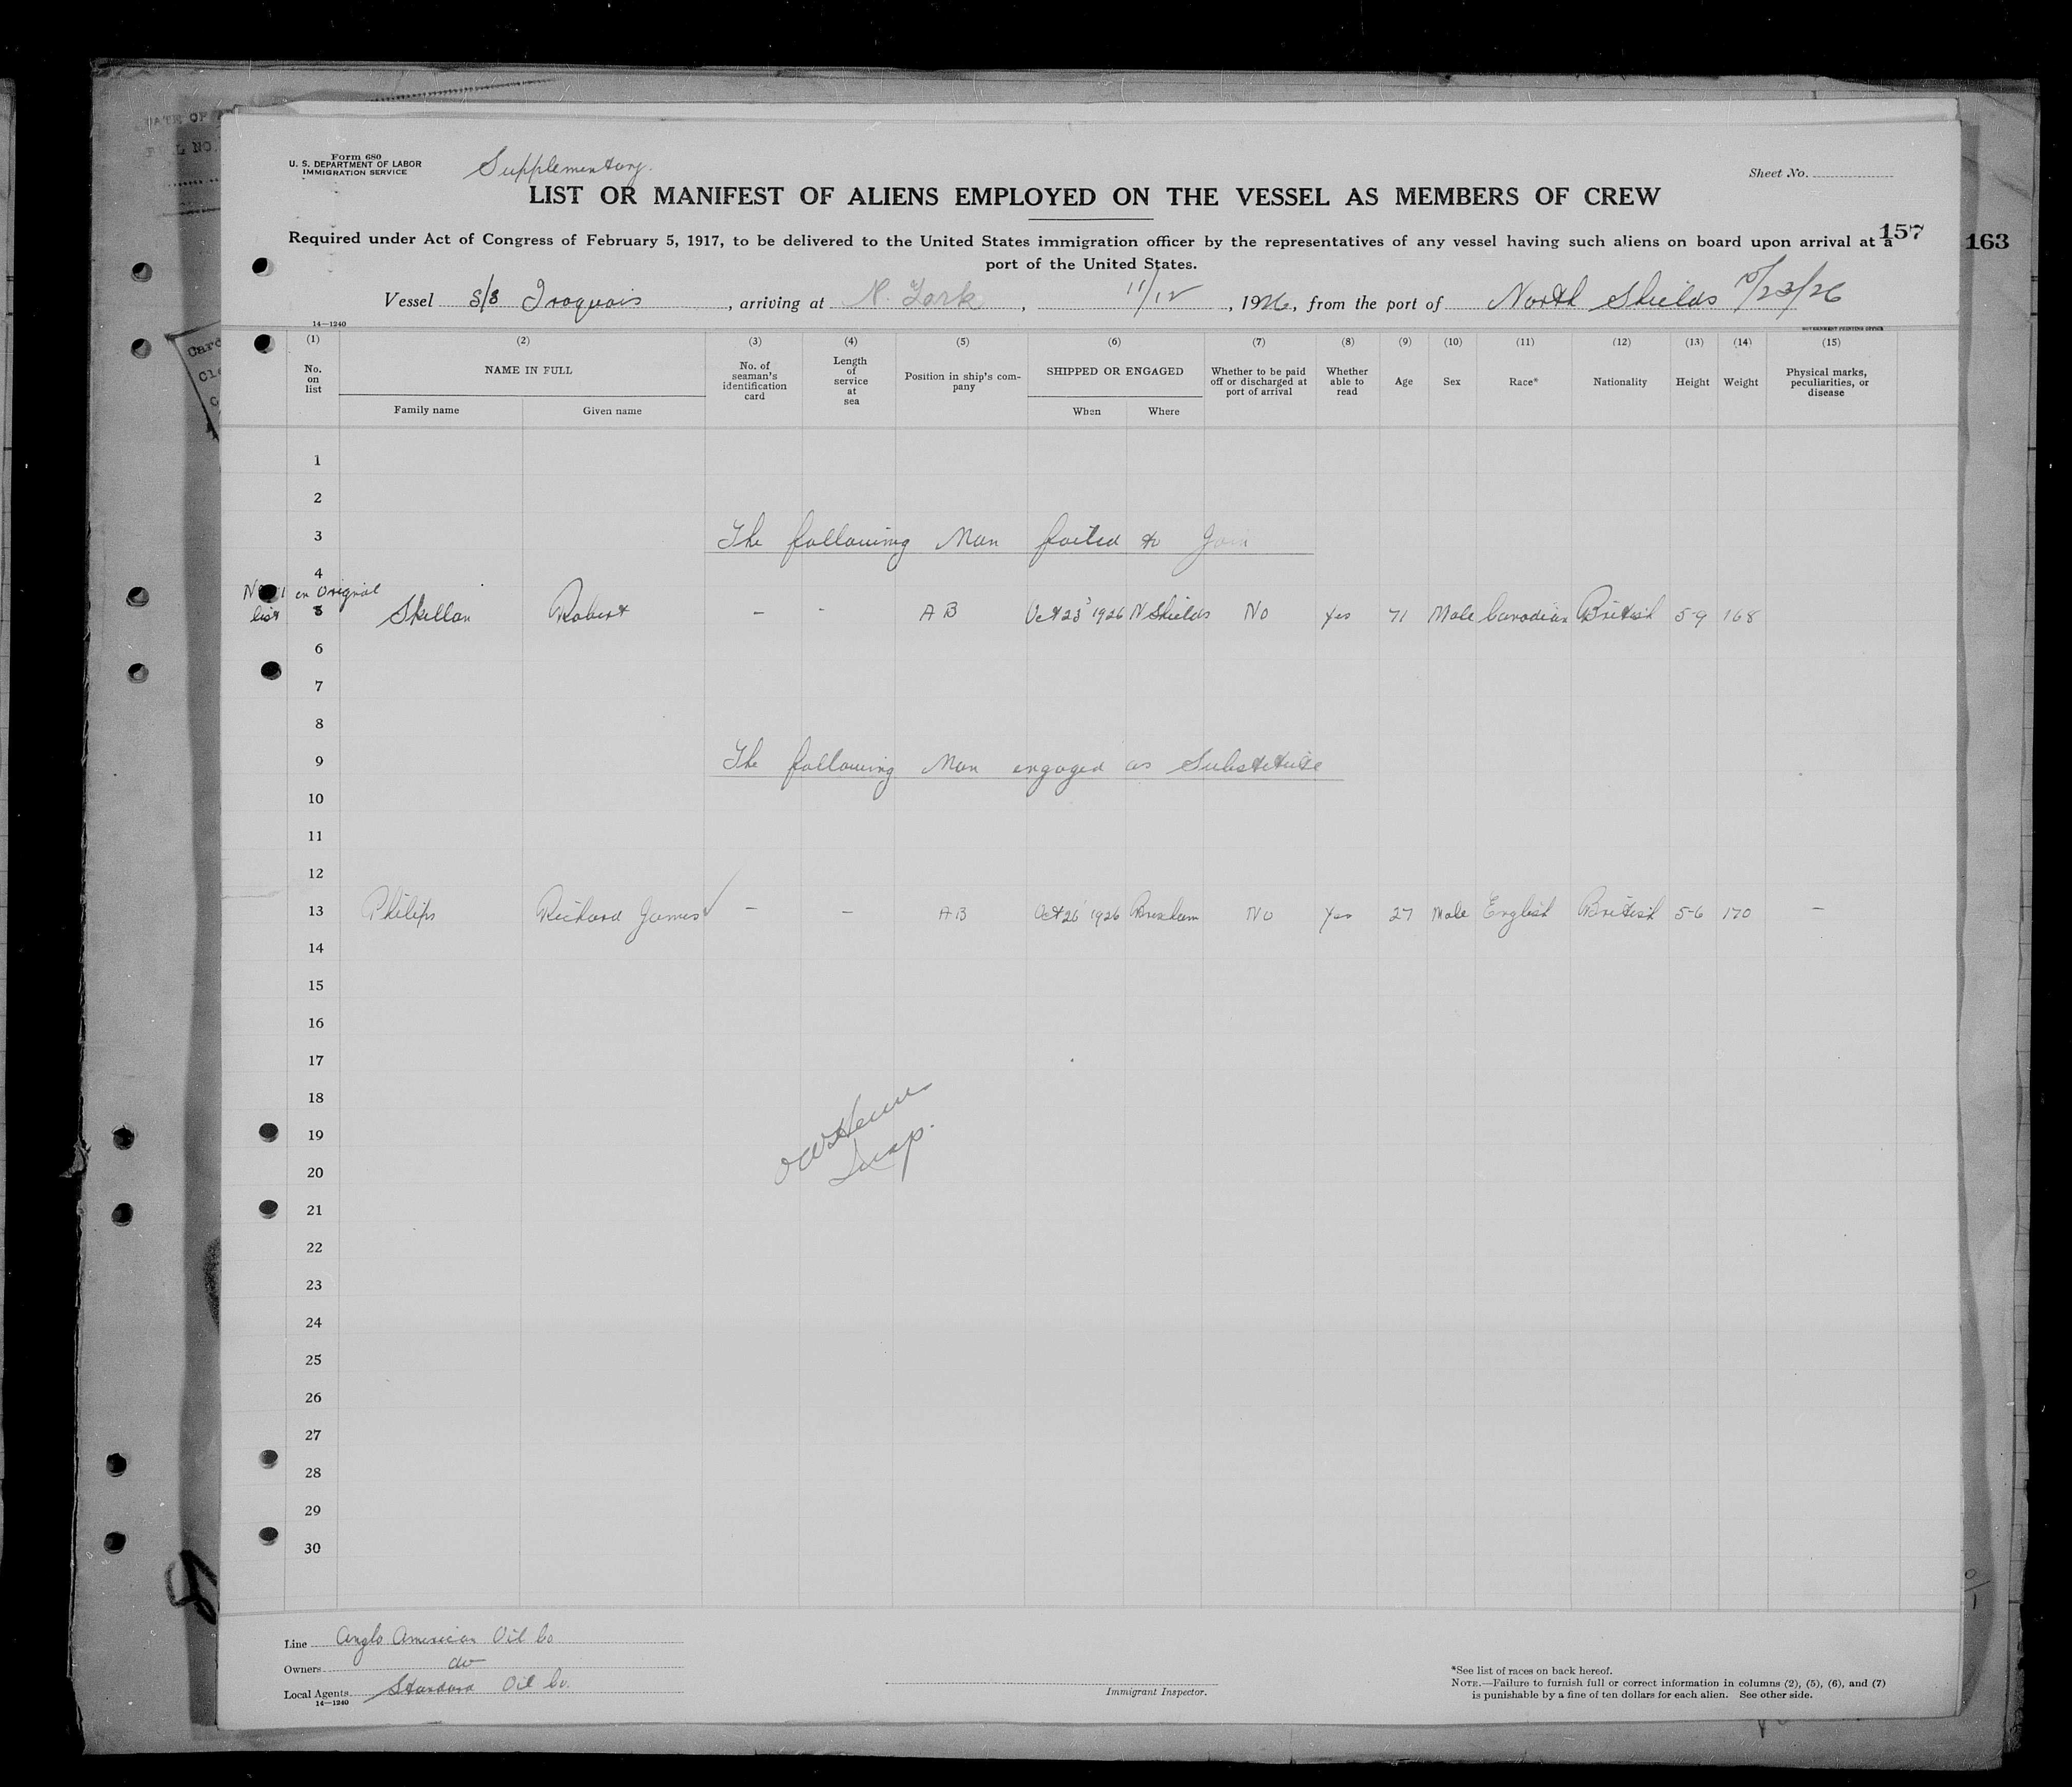 Form 680
U. S. DEPARTMENT OF LABOR
IMMIGRATION SERVICE
Supplementary.
Sheet No.
LIST OR MANIFEST OF ALIENS EMPLOYED ON THE VESSEL AS MEMBERS OF CREW
157
163
Required under Act of Congress of February 5, 1917, to be delivered to the United States immigration officer by the representatives of any vessel having such aliens on board upon arrival at a
port of the United States.
Vessel S/S Iroquois, arriving at N. York, 11/12, 1926, from the port of North Shields 10/23/26
14—1240
GOVERNMENT PRINTING OFFICE
(1) (2) (3) (4) (5) (6) (7) (8) (9) (10) (11) (12) (13) (14) (15)
No. on list
NAME IN FULL
Family name Given name
No. of seaman's identification card
Length of service at sea
Position in ship's company
SHIPPED OR ENGAGED
When Where
Whether to be paid off or discharged at port of arrival
Whether able to read
Age
Sex
Race*
Nationality
Height
Weight
Physical marks, peculiarities, or disease
1
2
3 The following Man failed to Join
4
on Original
list
5 Skillan Robert - - A B Oct 23 1926 N Shields No Yes 71 Male Canadian British 5-9 168
6
7
8
9 The following Man engaged as Substitute
10
11
12
13 Philips Richard James ✓ - - A B Oct 26 1926 Brixham No Yes 27 Male English British 5-6 170 -
14
15
16
17
18
19
20
21
22
23
24
25
26
27
28
29
30
Insp.
Line Anglo American Oil Co
Owners do
Local Agents Standard Oil Co.
14—1240
Immigrant Inspector.
*See list of races on back hereof.
NOTE.—Failure to furnish full or correct information in columns (2), (5), (6), and (7)
is punishable by a fine of ten dollars for each alien. See other side.